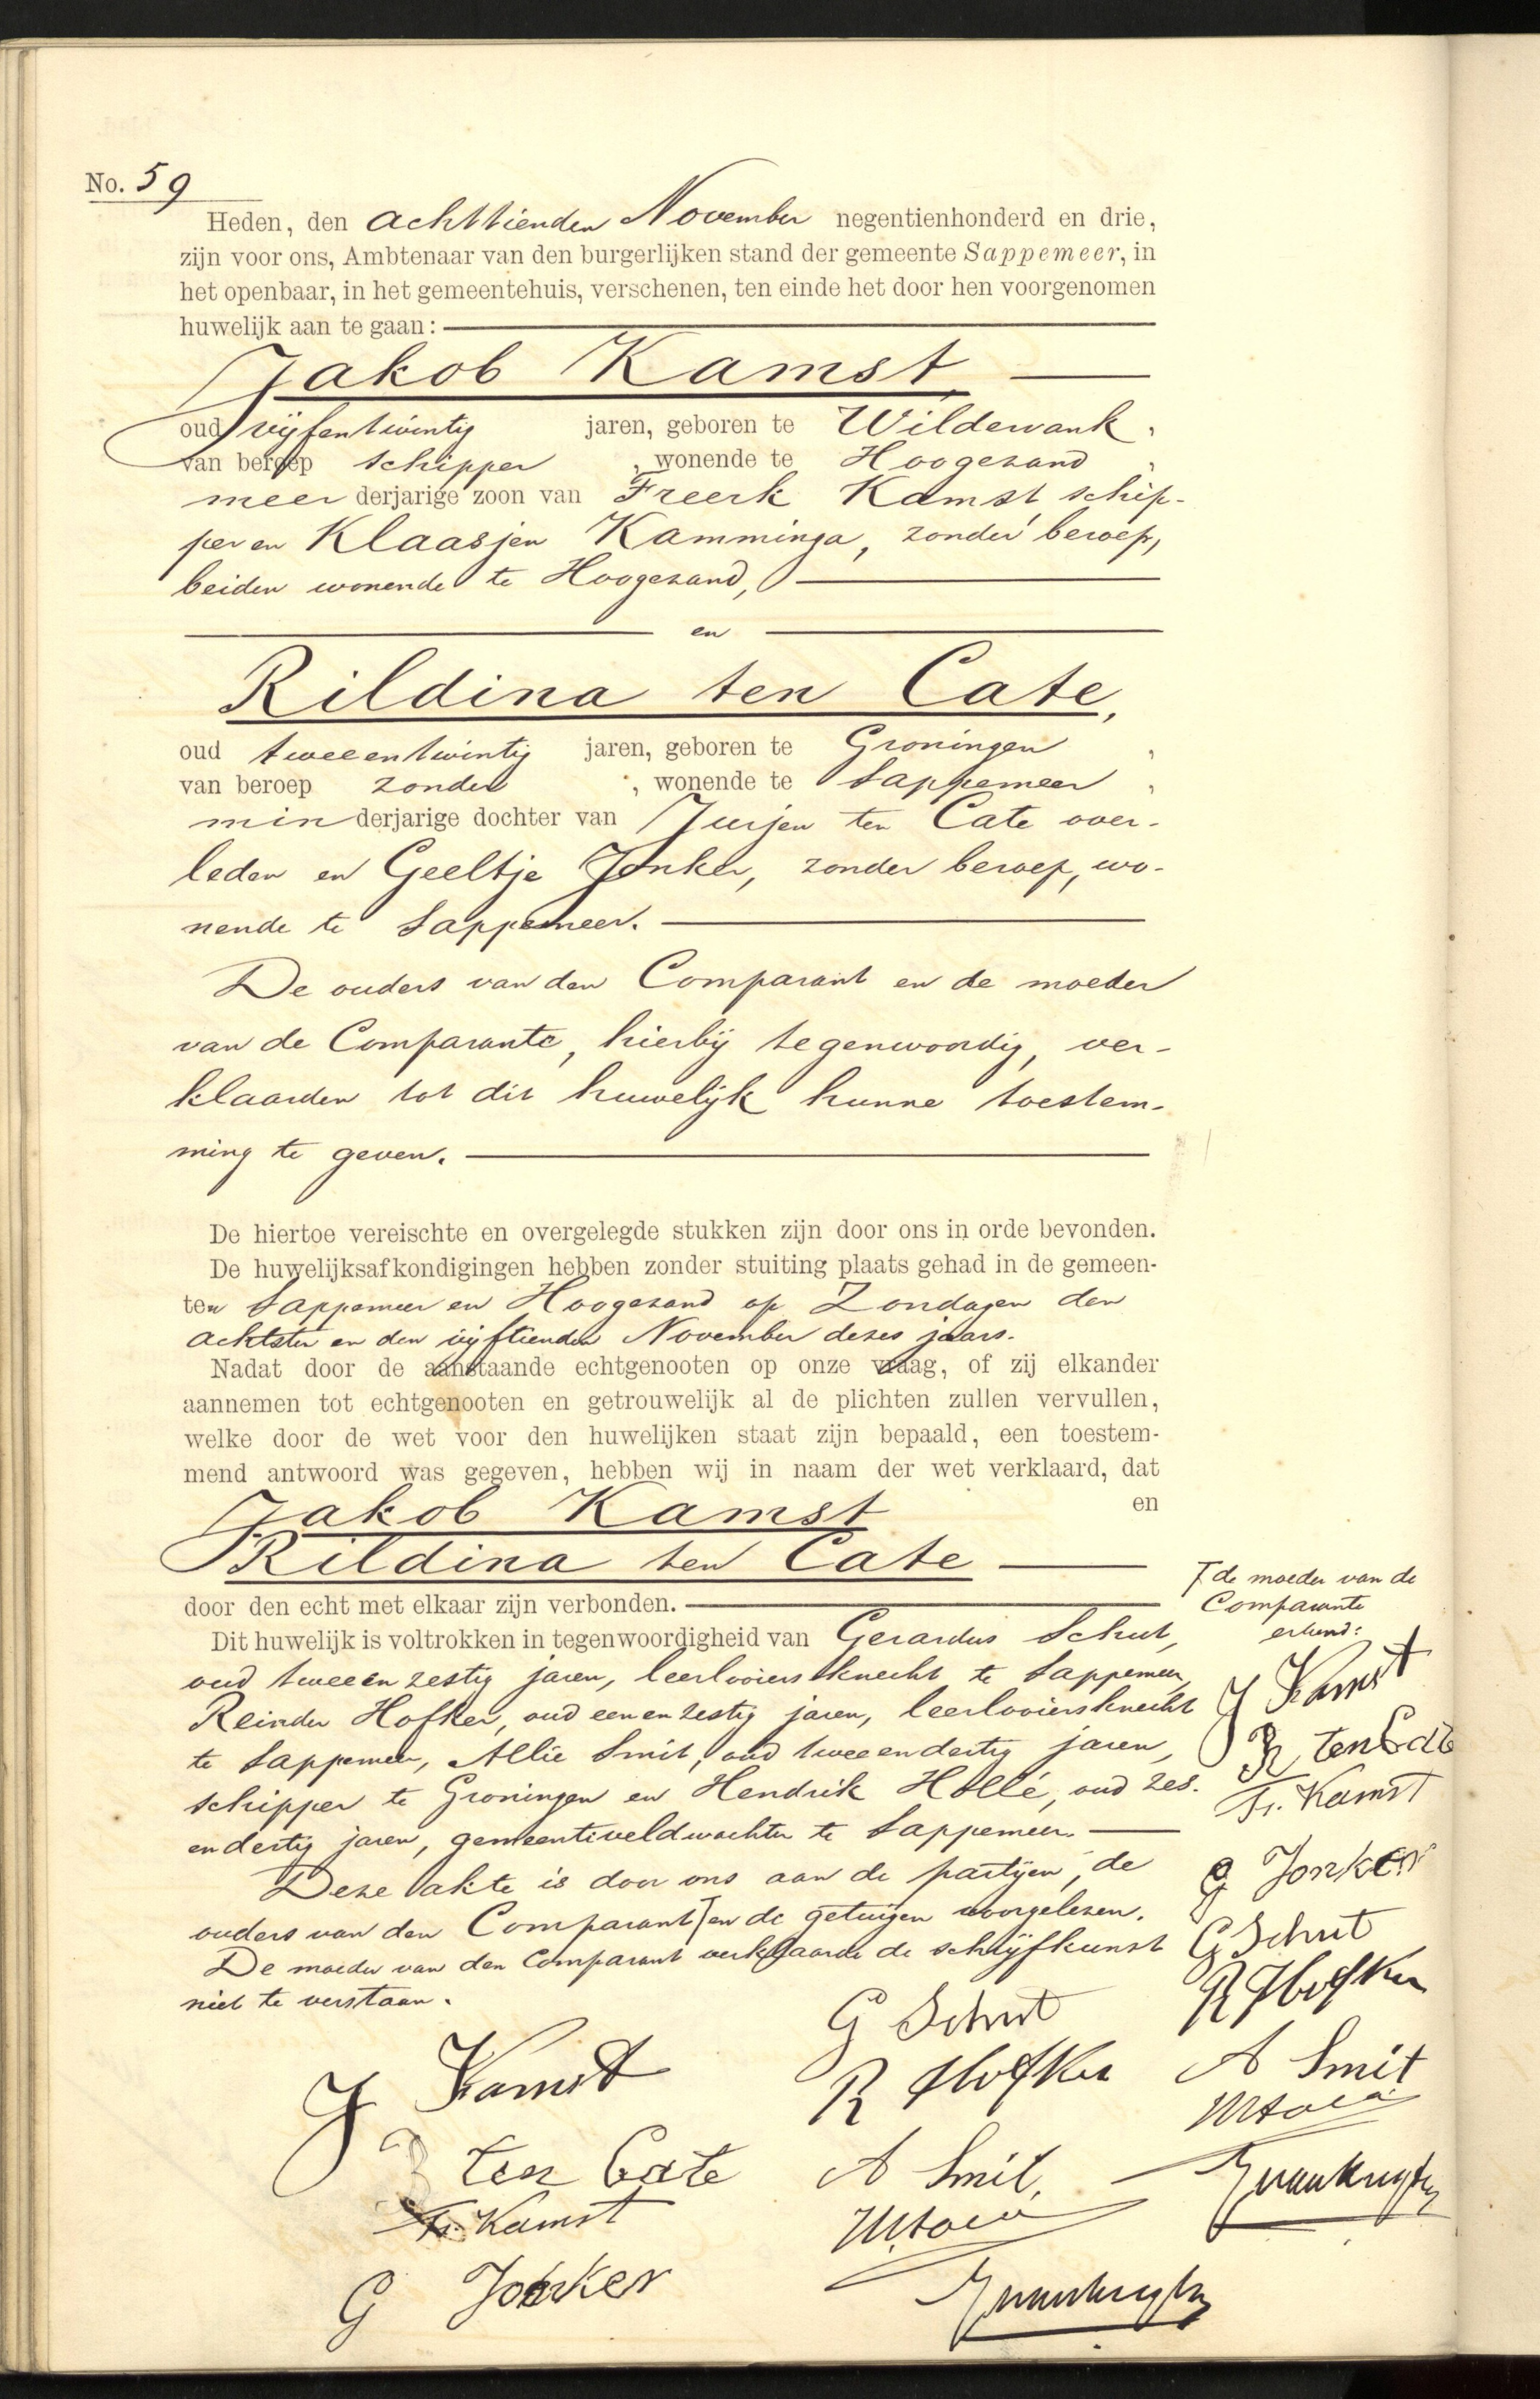 No. 59
Heden, den achttienden November negentienhonderd en drie,
zijn voor ons, Ambtenaar van den burgerlijken stand der gemeente Sappemeer, in
het openbaar, in het gemeentehuis, verschenen, ten einde het door hen voorgenomen
huwelijk aan te gaan:
Jakob Kamst
oud vijfentwintig jaren, geboren te Wildervank,
van beroep schipper, wonende te Hoogezand,
meerderjarige zoon van Freerk Kamst, schip-
per en Klaasjen Kamminga, zonder beroep,
beiden wonende te Hoogezand,
en
Rildina ten Cate,
oud tweeentwintig jaren, geboren te Groningen,
van beroep zonder, wonende te Sappemeer,
minderjarige dochter van Jurjen ten Cate over-
leden en Geeltje Jonker, zonder beroep, wo-
nende te Sappemeer.
De ouders van den Comparant en de moeder
van de Comparante, hierbij tegenwoordig, ver-
klaarden tot dit huwelijk hunne toestem-
ming te geven.
De hiertoe vereischte en overgelegde stukken zijn door ons in orde bevonden.
De huwelijksafkondigingen hebben zonder stuiting plaats gehad in de gemeen-
ten Sappemeer en Hoogezand op Zondagen den
achtsten en den vijftienden November dezes jaars.
Nadat door de aanstaande echtgenooten op onze vraag, of zij elkander
aannemen tot echtgenooten en getrouwelijk al de plichten zullen vervullen,
welke door de wet voor den huwelijken staat zijn bepaald, een toestem-
mend antwoord was gegeven, hebben wij in naam der wet verklaard, dat
Jakob Kamst en
Rildina ten Cate
door den echt met elkaar zijn verbonden.
Dit huwelijk is voltrokken in tegenwoordigheid van Gerardus Schut,
oud tweeenzestig jaren, leerlooiersknecht te Sappemeer,
Reinder Hofker, oud eenenzestig jaren, leerlooiersknecht
te Sappemeer, Allie Smit, oud tweeendertig jaren,
schipper te Groningen en Hendrik Hollé, oud zes-
endertig jaren, gemeenteveldwachter te Sappemeer.
Deze akte is door ons aan de partijen, de
ouders van den Comparant en de getuigen voorgelezen.
De moeder van den Comparant verklaarde de schrijfkunst
niet te verstaan.
J Kamst
ten Cate
Fr. Kamst
G Jonker
G Schut
R Hofker
A Smit
de moeder van de
Comparante
erkend:
J Kamst
R ten Cate
Fr. Kamst
G Jonker
G Schut
R Hofker
A Smit